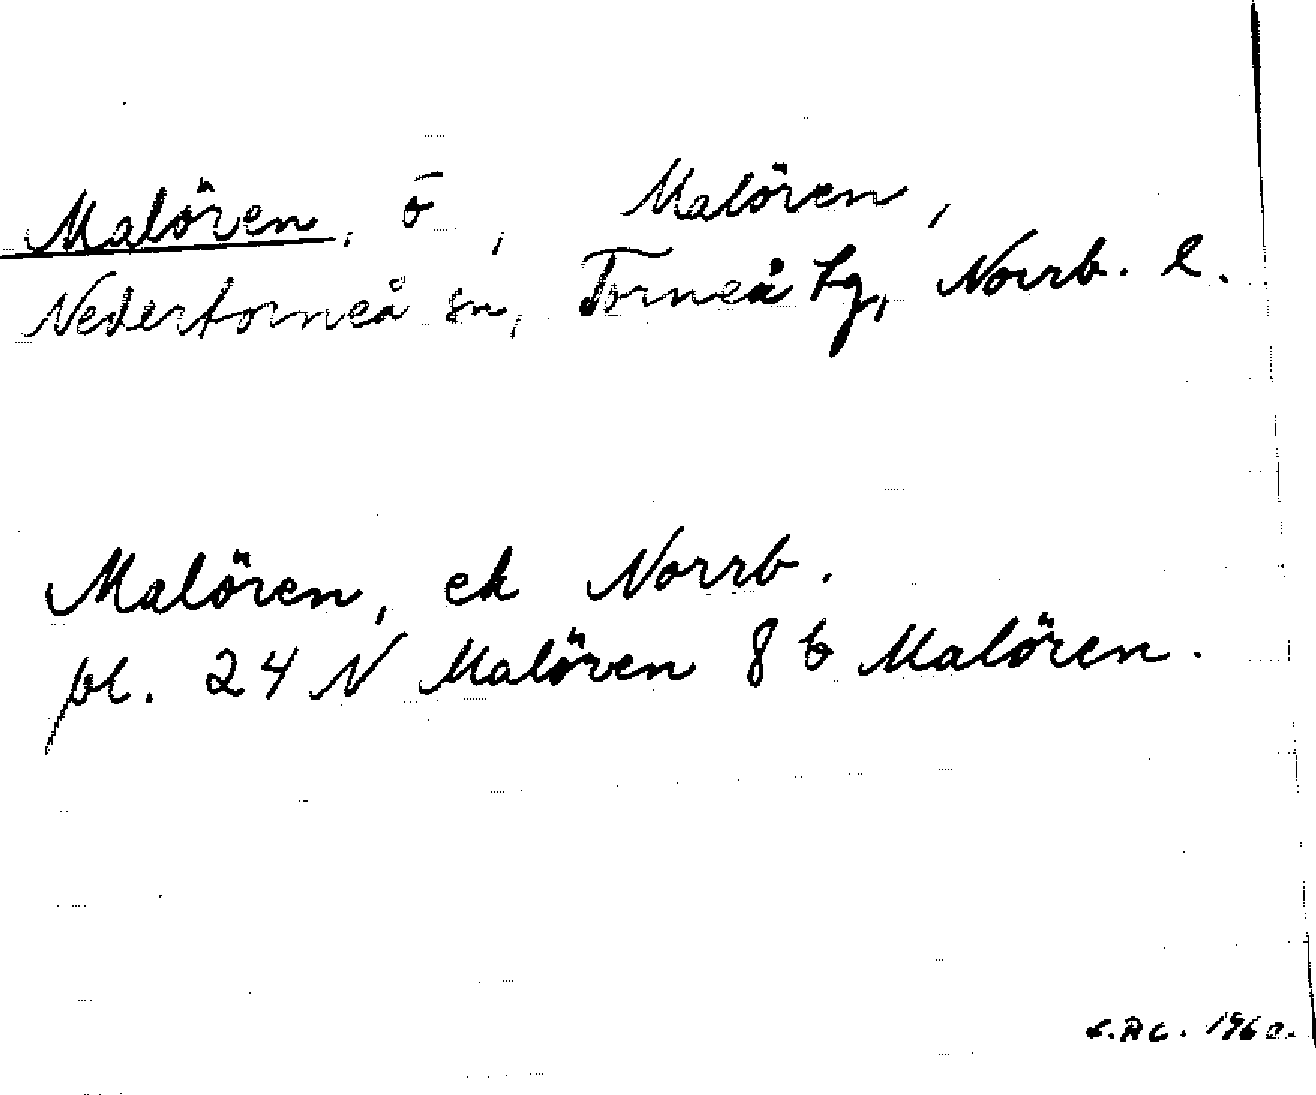 Malören, ö, Malören,
Nedertorneå sn, Torneå tg, Norrb. l.
Malören, ek Norrb.
bl. 24 N Malören 8 b Malören.
1960.